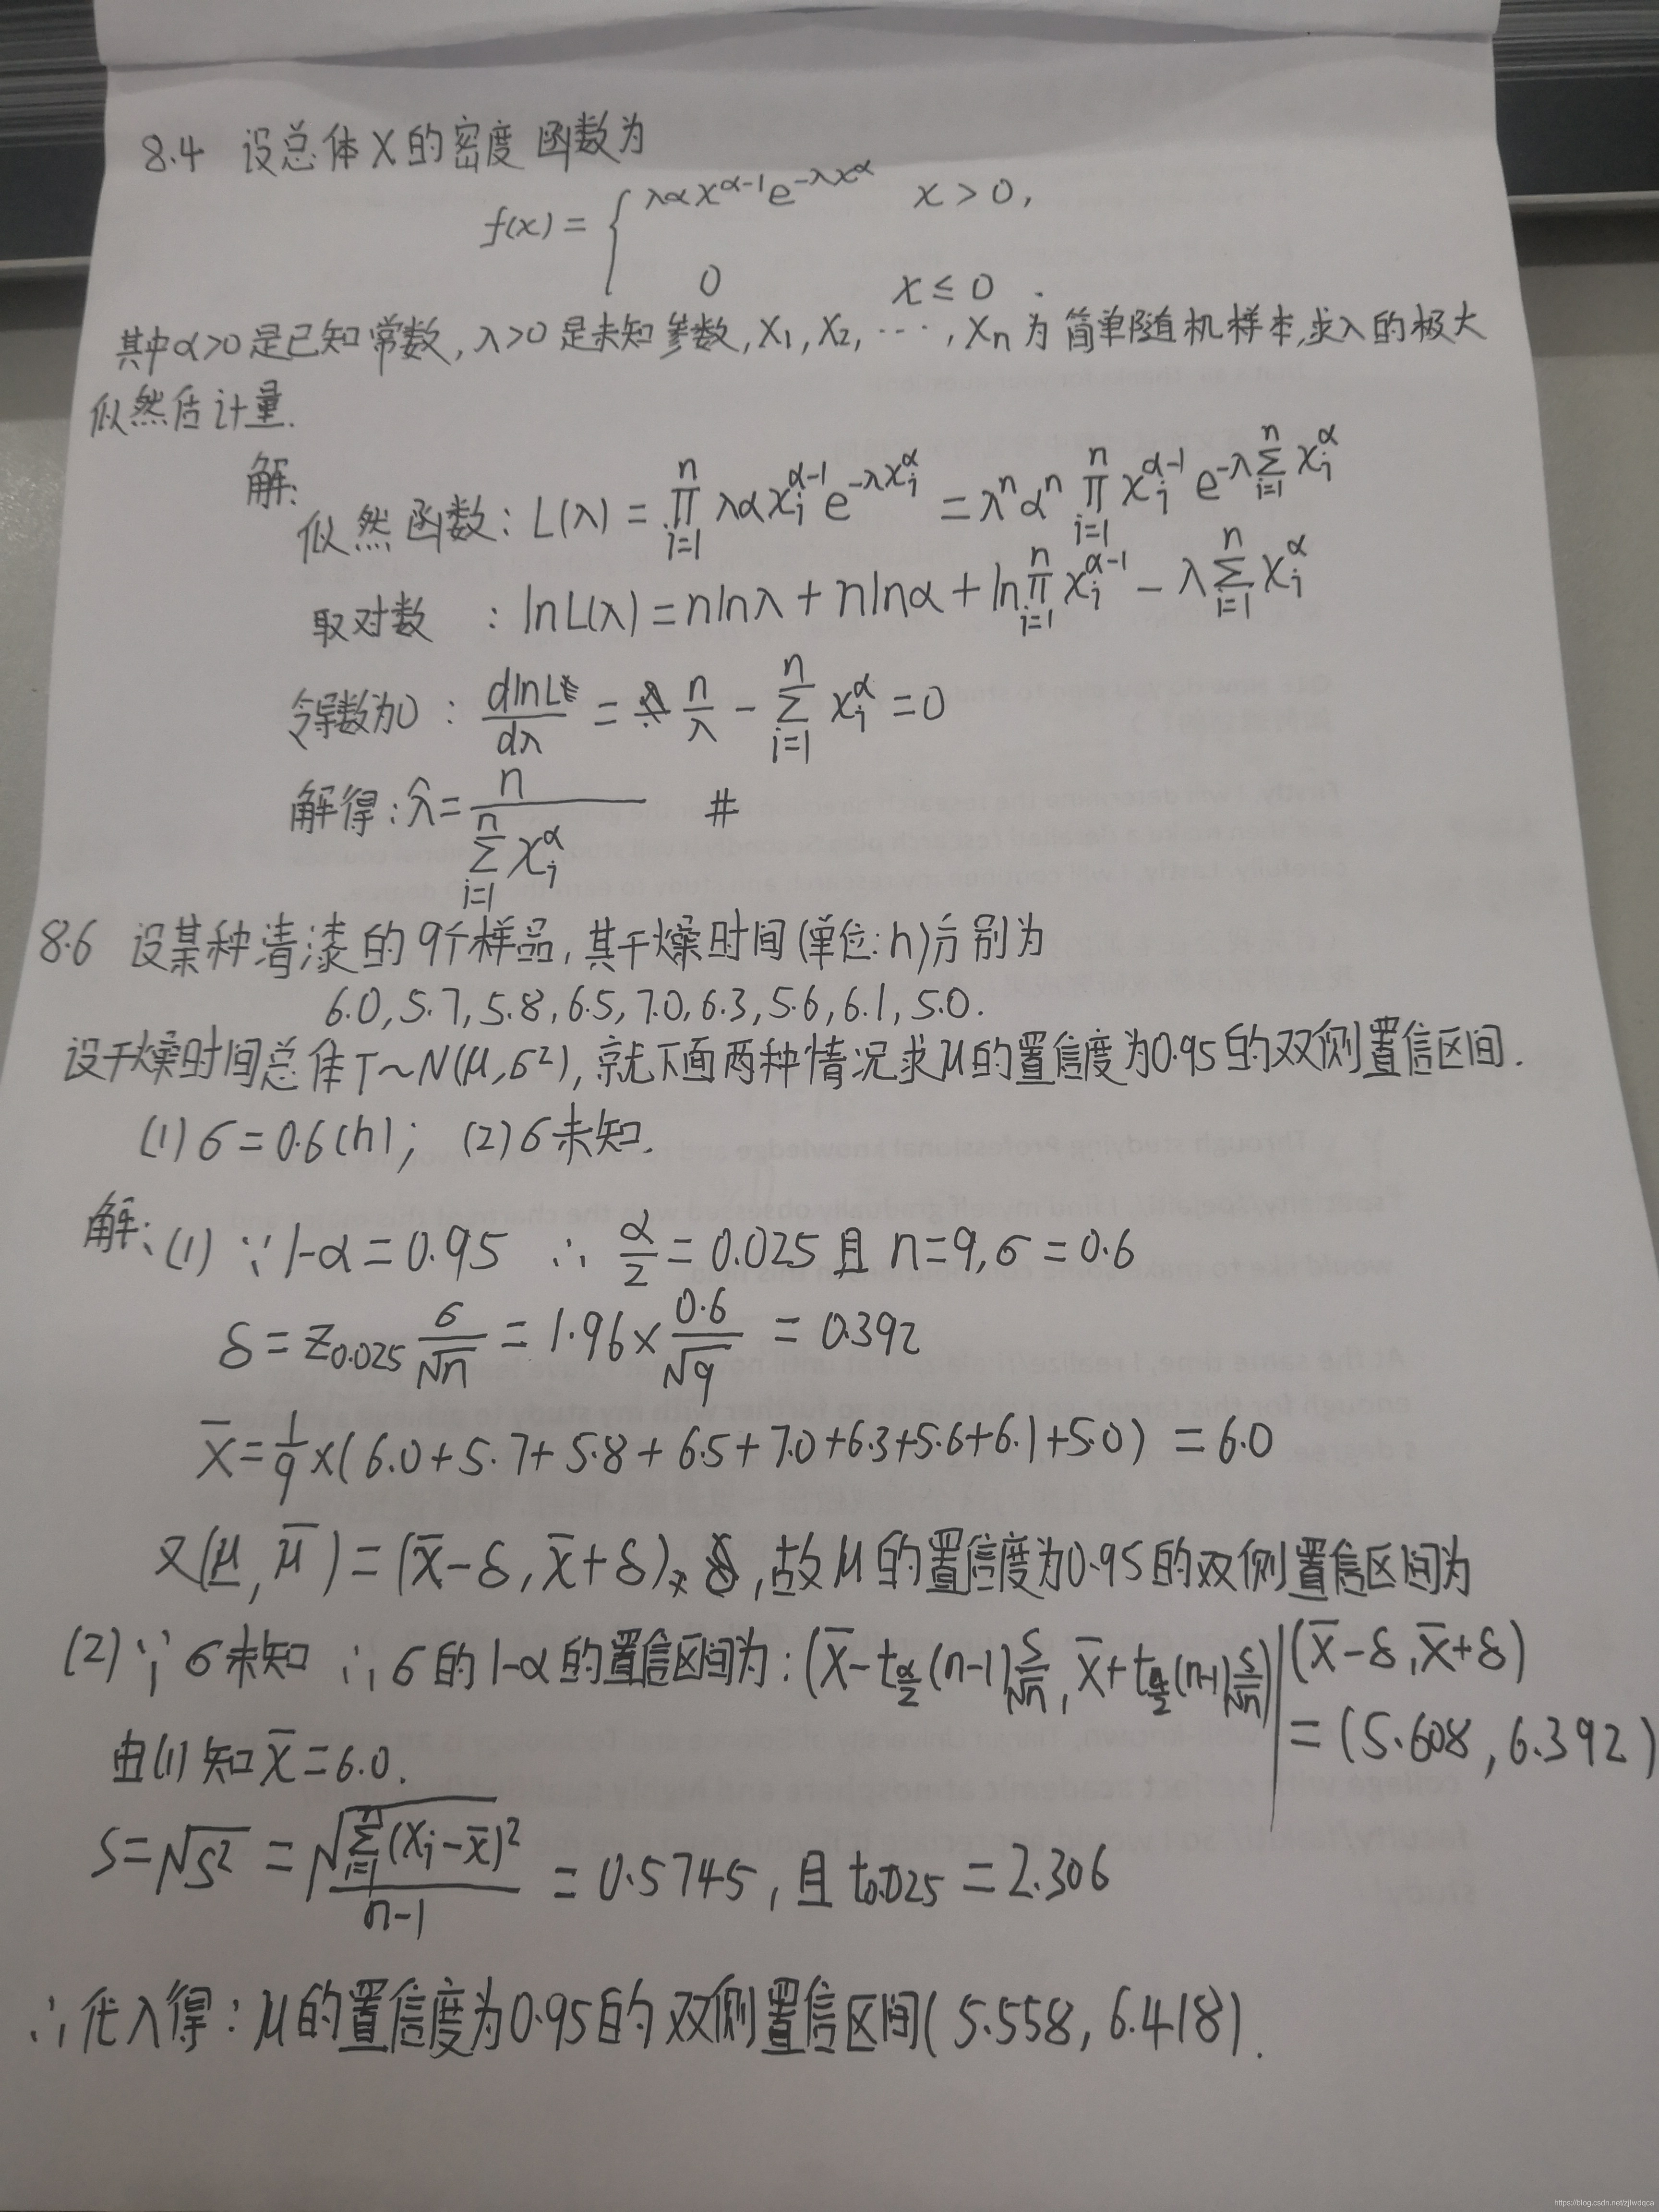 8.4 设总体X的密度函数为
f(x) = { λαx^{α-1}e^{-λx^α} x > 0,
0 x ≤ 0 .
其中α>0是已知常数, λ>0是未知参数, X₁, X₂, ⋯, Xn为简单随机样本,求λ的极大
似然估计量.
解:
似然函数: L(λ) = ∏_{i=1}^{n} λαx_i^{α-1}e^{-λx_i^α} = λ^nα^n ∏_{i=1}^{n} x_i^{α-1} e^{-λ∑_{i=1}^{n} x_i^α}
取对数 : lnL(λ) = nlnλ + nlnα + ln∏_{i=1}^{n} x_i^{α-1} - λ∑_{i=1}^{n} x_i^α
令导数为0 : dlnL/dλ = n/λ - ∑_{i=1}^{n} x_i^α = 0
解得: λ̂ = n/∑_{i=1}^{n} x_i^α #
8.6 设某种清漆的9个样品, 其干燥时间(单位:h)分别为
6.0, 5.7, 5.8, 6.5, 7.0, 6.3, 5.6, 6.1, 5.0.
设干燥时间总体T~N(μ,σ²), 就下面两种情况求μ的置信度为0.95的双侧置信区间.
(1) σ=0.6(h); (2) σ未知.
解: (1) ∵ 1-α=0.95 ∴ α/2=0.025 且 n=9, σ=0.6
δ = z_{0.025} σ/√n = 1.96×0.6/√9 = 0.392
x̄ = 1/9 ×(6.0+5.7+5.8+6.5+7.0+6.3+5.6+6.1+5.0) = 6.0
又(μ̲, μ̄) = (x̄-δ, x̄+δ), 故μ的置信度为0.95的双侧置信区间为
(x̄-δ, x̄+δ)
= (5.608, 6.392)
(2) ∵ σ未知 ∴ σ的1-α的置信区间为: (x̄-t_{α/2}(n-1)S/√n, x̄+t_{α/2}(n-1)S/√n)
由(1)知x̄=6.0.
S=√S² = √(∑_{i=1}^{n}(x_i-x̄)²/n-1) = 0.5745, 且t_{0.025}=2.306
∴代入得: μ的置信度为0.95的双侧置信区间(5.558, 6.418).
https://blog.csdn.net/zjlwdqca